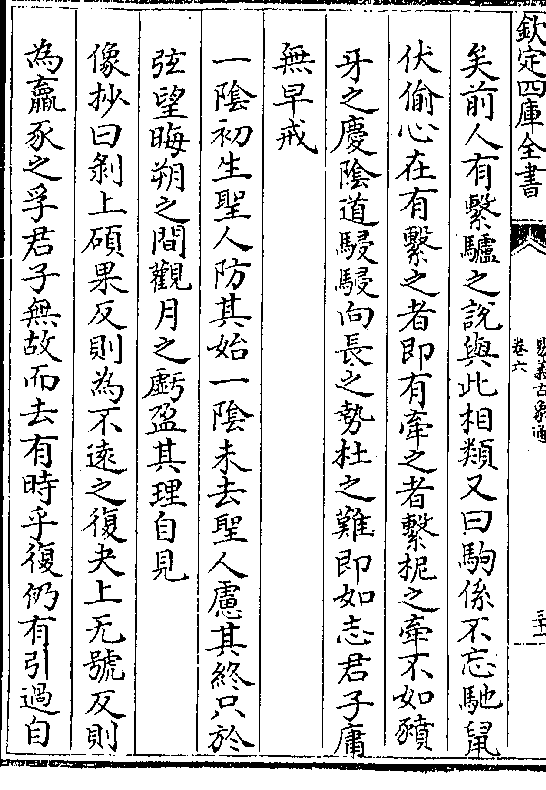 欽定四庫全書
易義古象通
卷六
三十一
矣前人有繫驢之說與此相類又曰駒係不忘馳鼠
伏偷心在有繫之者即有牽之者繫柅之牽不如豶
牙之慶陰道駸駸向長之勢杜之難即如志君子庸
無早戒
一陰初生聖人防其始一陰未去聖人慮其終只於
弦望晦朔之間觀月之虧盈其理自見
像抄曰剝上碩果反則為不遠之復夬上无號反則
為羸豕之孚君子無故而去有時乎復仍有引過自